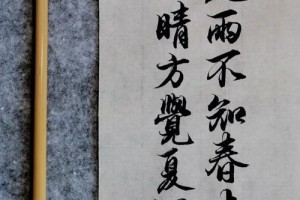 雨不知春
晴方覺夏